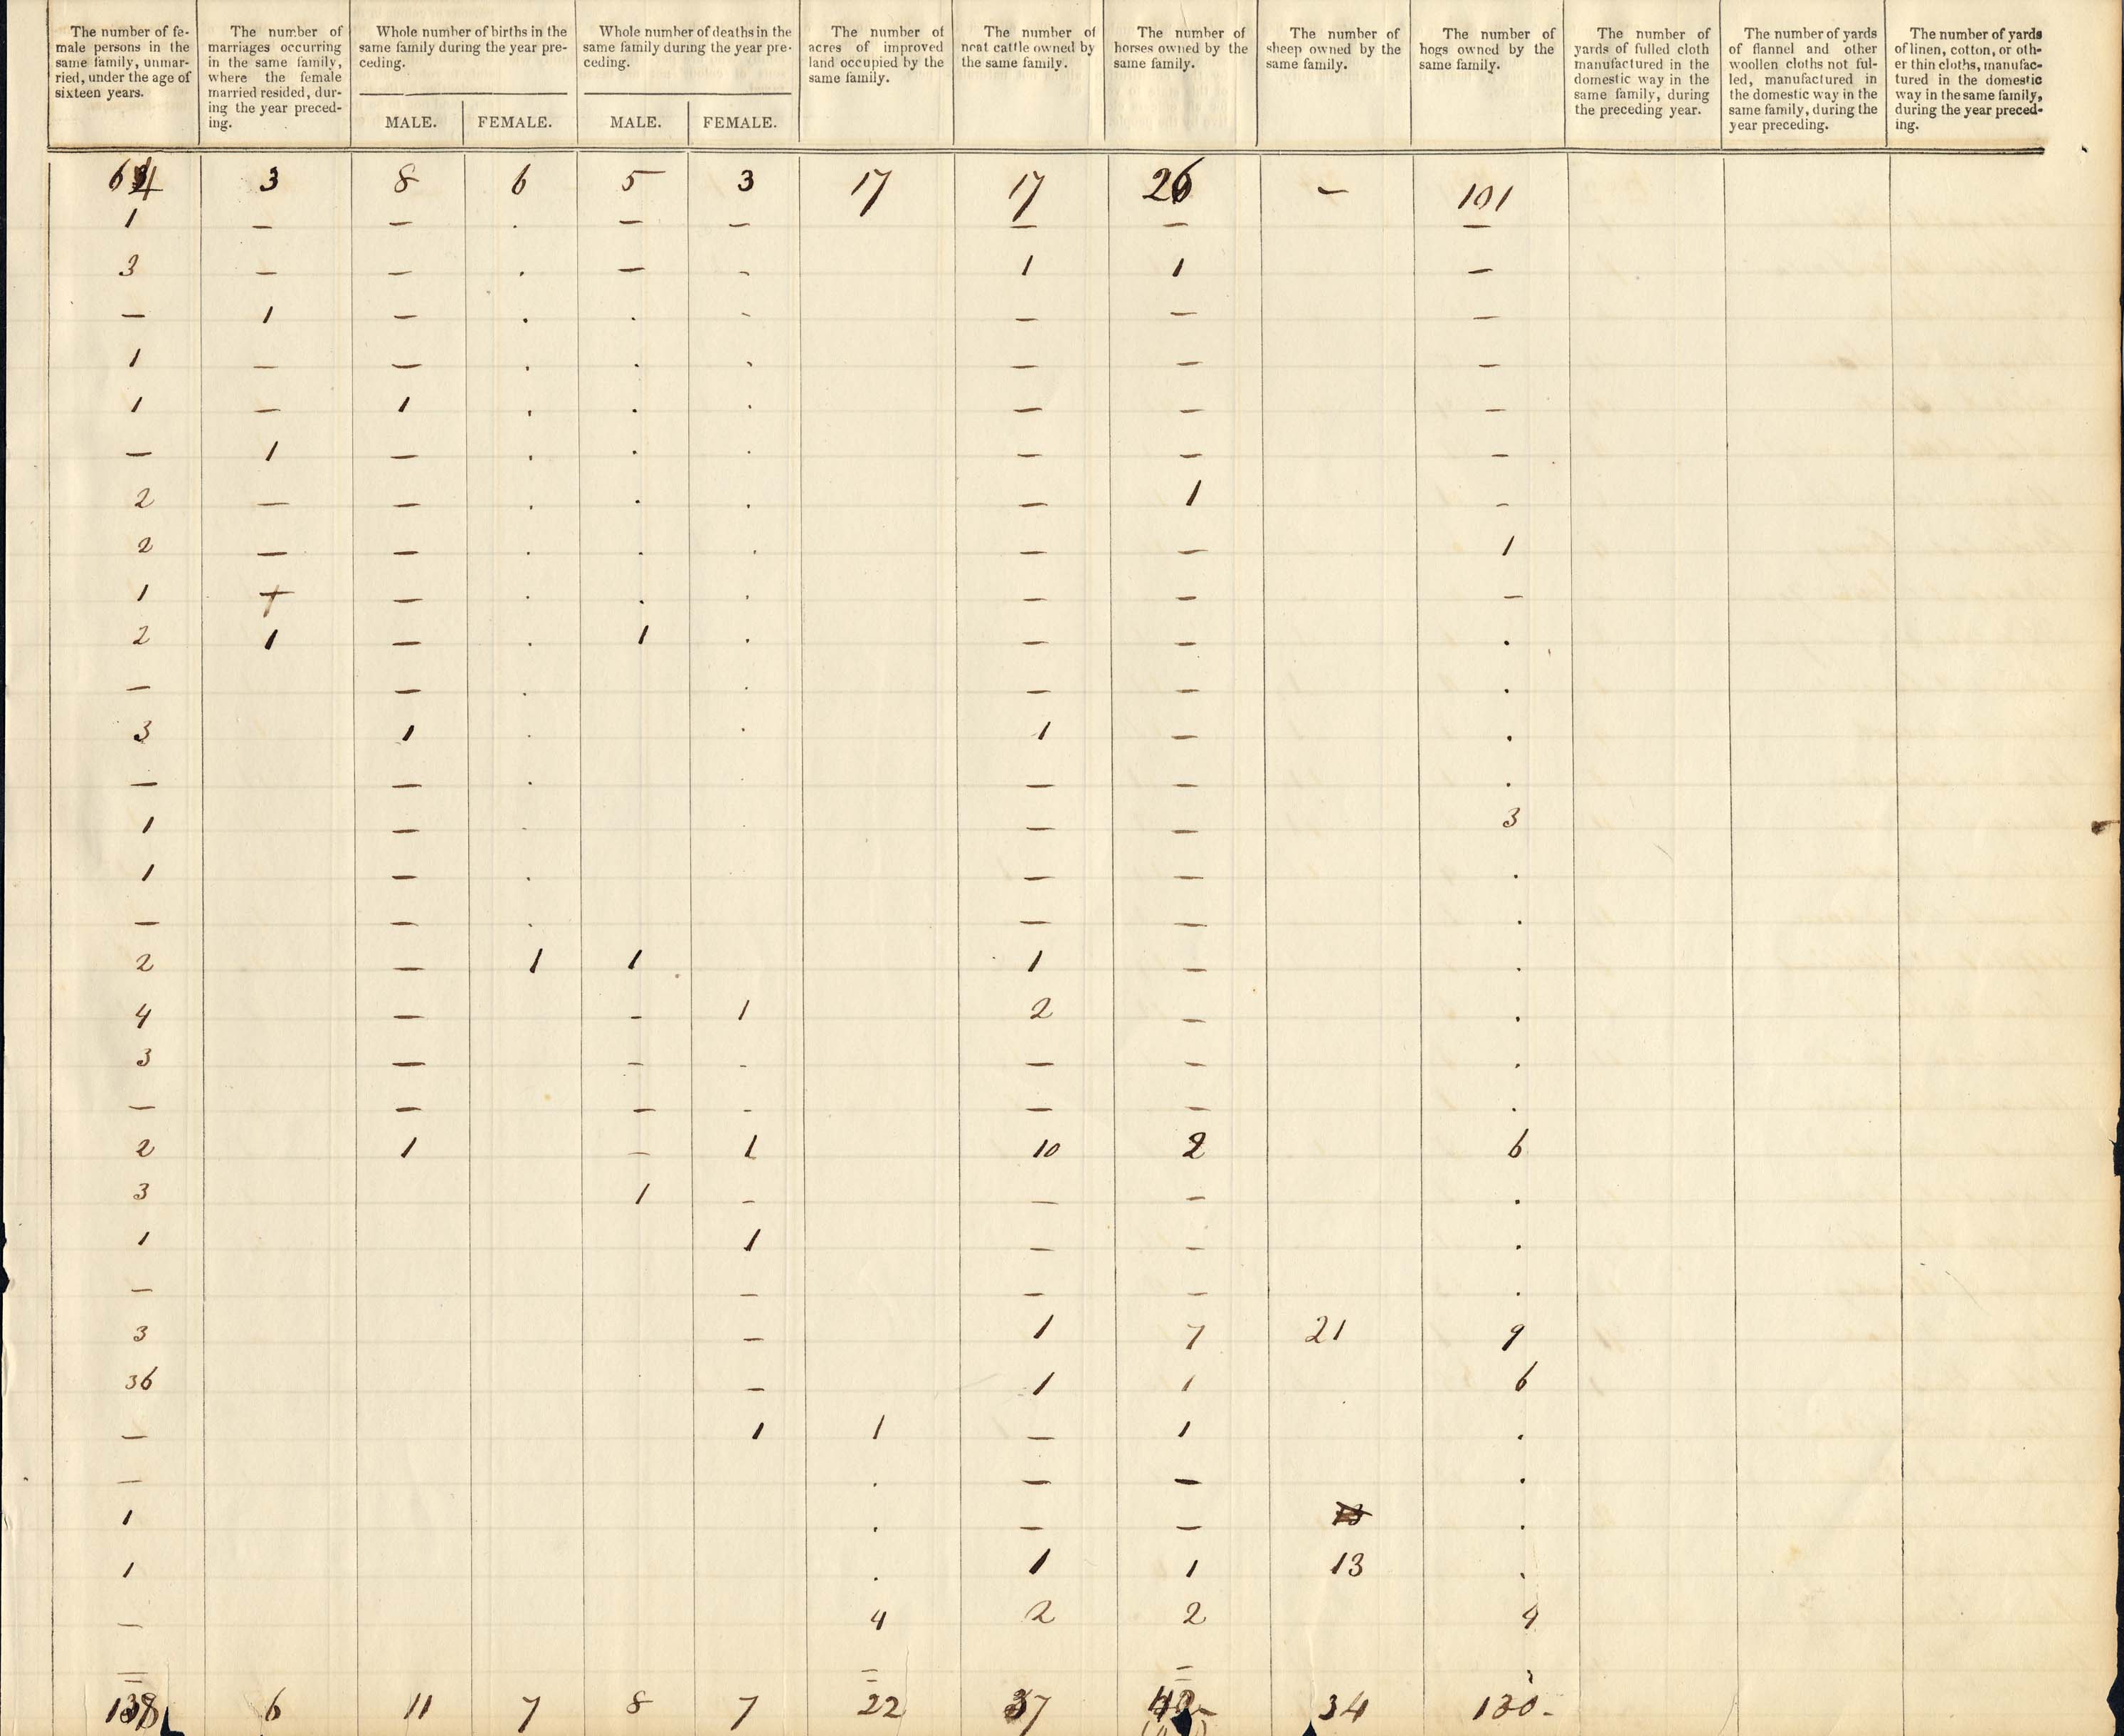 The number of fe-
male persons in the
same family, unmar-
ried, under the age of
sixteen years.
The number of
marriages occurring
in the same family,
where the female
married resided, dur-
ing the year preced-
ing.
Whole number of births in the
same family during the year pre-
ceding.
MALE. FEMALE.
Whole number of deaths in the
same family during the year pre-
ceding.
MALE. FEMALE.
The number of
acres of improved
land occupied by the
same family.
The number of
neat cattle owned by
the same family.
The number of
horses owned by the
same family.
The number of
sheep owned by the
same family.
The number of
hogs owned by the
same family.
The number of
yards of fulled cloth
manufactured in the
domestic way in the
same family, during
the preceding year.
The number of yards
of flannel and other
woollen cloths not ful-
led, manufactured in
the domestic way in the
same family, during the
year preceding.
The number of yards
of linen, cotton, or oth-
er thin cloths, manufac-
tured in the domestic
way in the same family,
during the year preced-
ing.
64 3 8 6 5 3 17 17 26 – 101
1 – – . – – – – –
3 – – . – - 1 1 –
– 1 – . . - – – –
1 – – . . . – – –
1 – 1 . . . – – –
– 1 – . . . – – –
2 – – . . . – 1 –
2 – – . . . – – 1
1 – . . . – – –
2 1 – . 1 . – – .
– – . . – – .
3 1 . . 1 – .
– – . – – .
1 – . – – 3
1 – . – – .
– – . – – .
2 – 1 1 1 – .
4 – - 1 2 – .
3 – – - – – .
– – – - – – .
2 1 – 1 10 2 6
3 1 – – – .
1 1 – – .
– – – – .
3 – 1 7 21 9
36 – 1 1 6
– 1 1 – 1 .
– . – – .
1 . – – .
1 . 1 1 13 .
– 4 2 2 4
6 11 7 8 7 22 37 34 130-